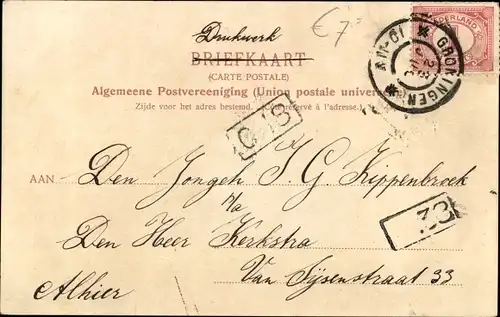 Drukwerk
€7
BRIEFKAART
(CARTE POSTALE)
Algemeene Postvereeniging (Union postale universelle)
Zijde voor het adres bestemd. (Côté réservé à l'adresse.)
NEDERLAND
GRONINGEN
AAN
Den Jongeh J. G. Kippenbroek
p/a
Den Heer Kerkstra
Van Sijsenstraat 33
Alhier